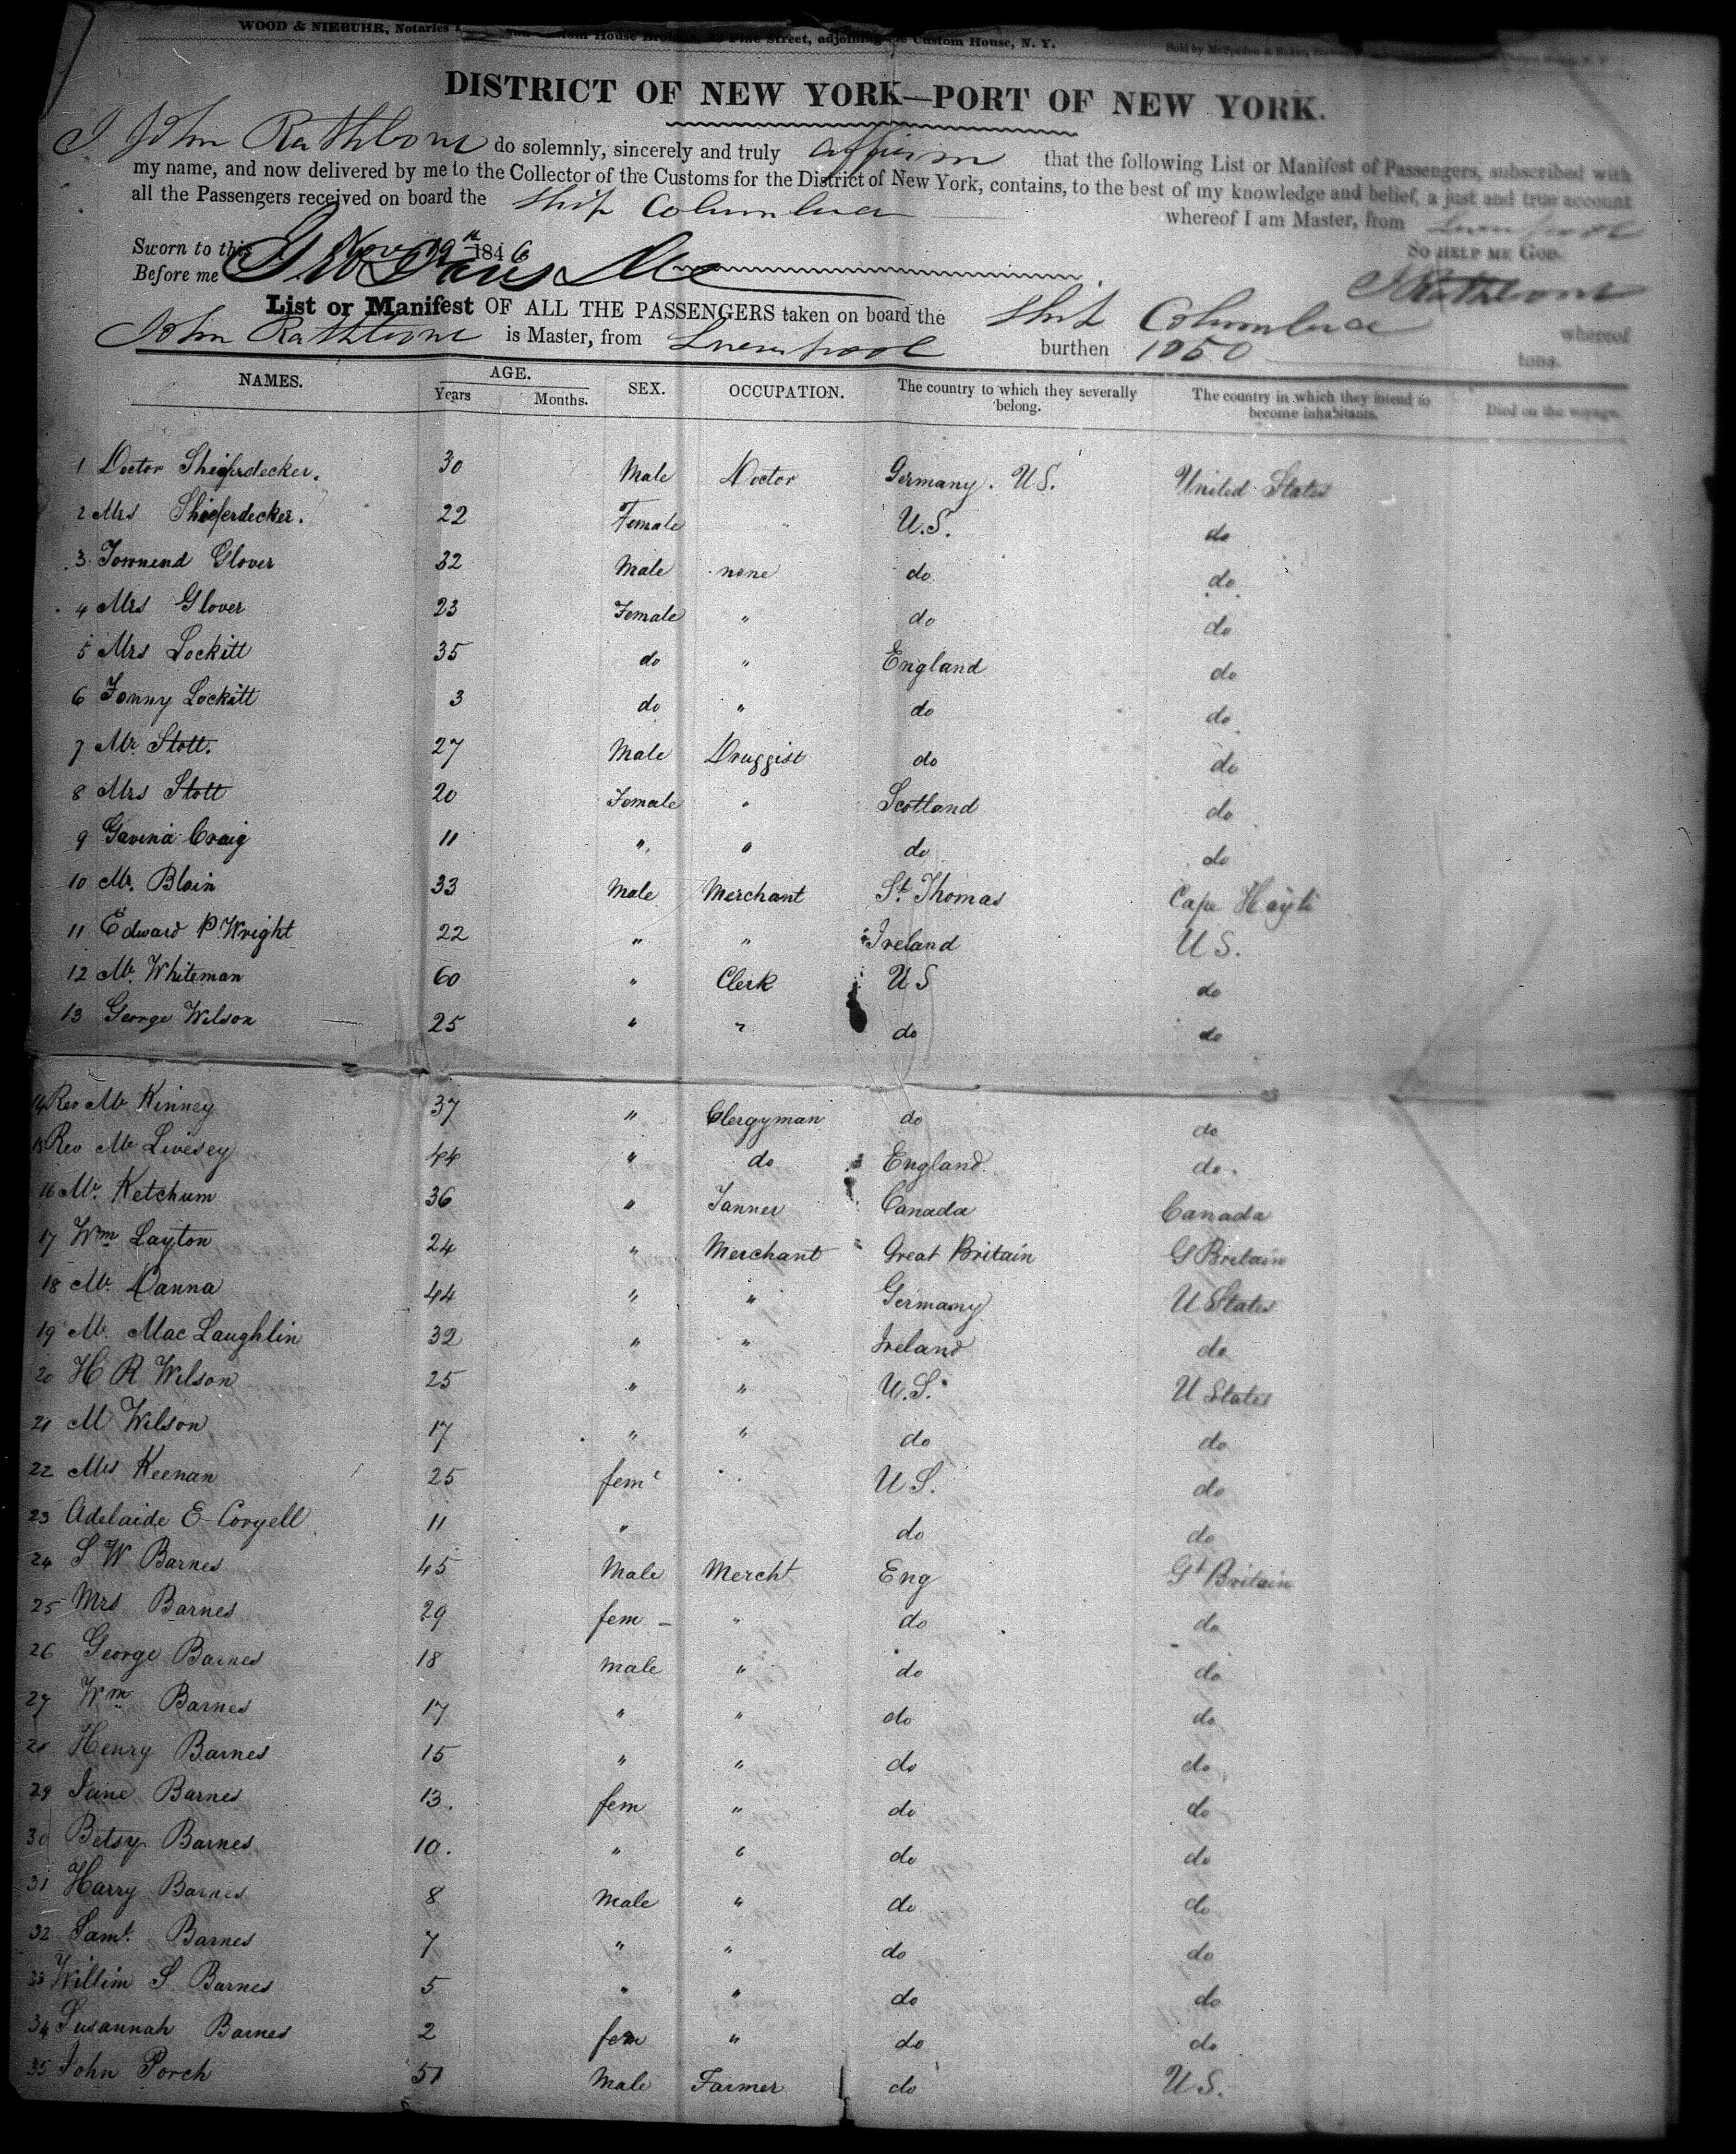 WOOD & NIEBUHR, Notaries House Brokers, Pine Street, adjoining Custom House, N. Y.
Sold by McSpedon & Baker,
DISTRICT OF NEW YORK—PORT OF NEW YORK.
I John Rathbone do solemnly, sincerely and truly affirm that the following List or Manifest of Passengers, subscribed with
my name, and now delivered by me to the Collector of the Customs for the District of New York, contains, to the best of my knowledge and belief, a just and true account
all the Passengers received on board the Ship Columbia whereof I am Master, from Liverpool
Sworn to this Nov 19th 1846 SO HELP ME GOD.
Before me J Rathbone
List or Manifest OF ALL THE PASSENGERS taken on board the Ship Columbia whereof
John Rathbone is Master, from Liverpool burthen 1050 tons.
NAMES. AGE. Years Months. SEX. OCCUPATION. The country to which they severally belong. The country in which they intend to become inhabitants. Died on the voyage.
1 Doctor Shieferdecker. 30 Male Doctor Germany. U.S. United States
2 Mrs Shieferdecker. 22 Female " U.S. do
3 Townend Glover 32 Male none do do
4 Mrs Glover 23 Female " do do
5 Mrs Lockitt 35 do " England do
6 Fanny Lockitt 3 do " do do
7 Mr. Stott. 27 Male Druggist do do
8 Mrs Stott 20 Female " Scotland do
9 Gavina Craig 11 " " do do
10 Mr. Blain 33 Male Merchant St. Thomas Cape Hayti
11 Edward P. Wright 22 " " Ireland U S.
12 Mr. Whiteman 60 " Clerk U S do
13 George Wilson 25 " " do do
14 Rev Mr Kinney 37 " Clergyman do do
15 Rev Mr Livesey 44 " do England do
16 Mr. Ketchum 36 " Tanner Canada Canada
17 Wm Layton 24 " Merchant Great Britain G Britain
18 Mr. Danna 44 " " Germany U States
19 Mr. Mac Laughlin 32 " " Ireland do
20 H R Wilson 25 " " U.S. U States
21 M Wilson 17 " " do do
22 Mrs Keenan 25 feml U S. do
23 Adelaide E Coryell 11 " do do
24 S W Barnes 45 Male Mercht Eng Gt Britain
25 Mrs Barnes 29 fem " do do
26 George Barnes 18 male " do do
27 Wm Barnes 17 " " do do
28 Henry Barnes 15 " " do do
29 Jane Barnes 13. fem " do do
30 Betsy Barnes 10. " " do do
31 Harry Barnes 8 Male " do do
32 Saml. Barnes 7 " " do do
33 Willim S Barnes 5 " " do do
34 Susannah Barnes 2 fem " do do
35 John Porch 51 Male Farmer do U S.